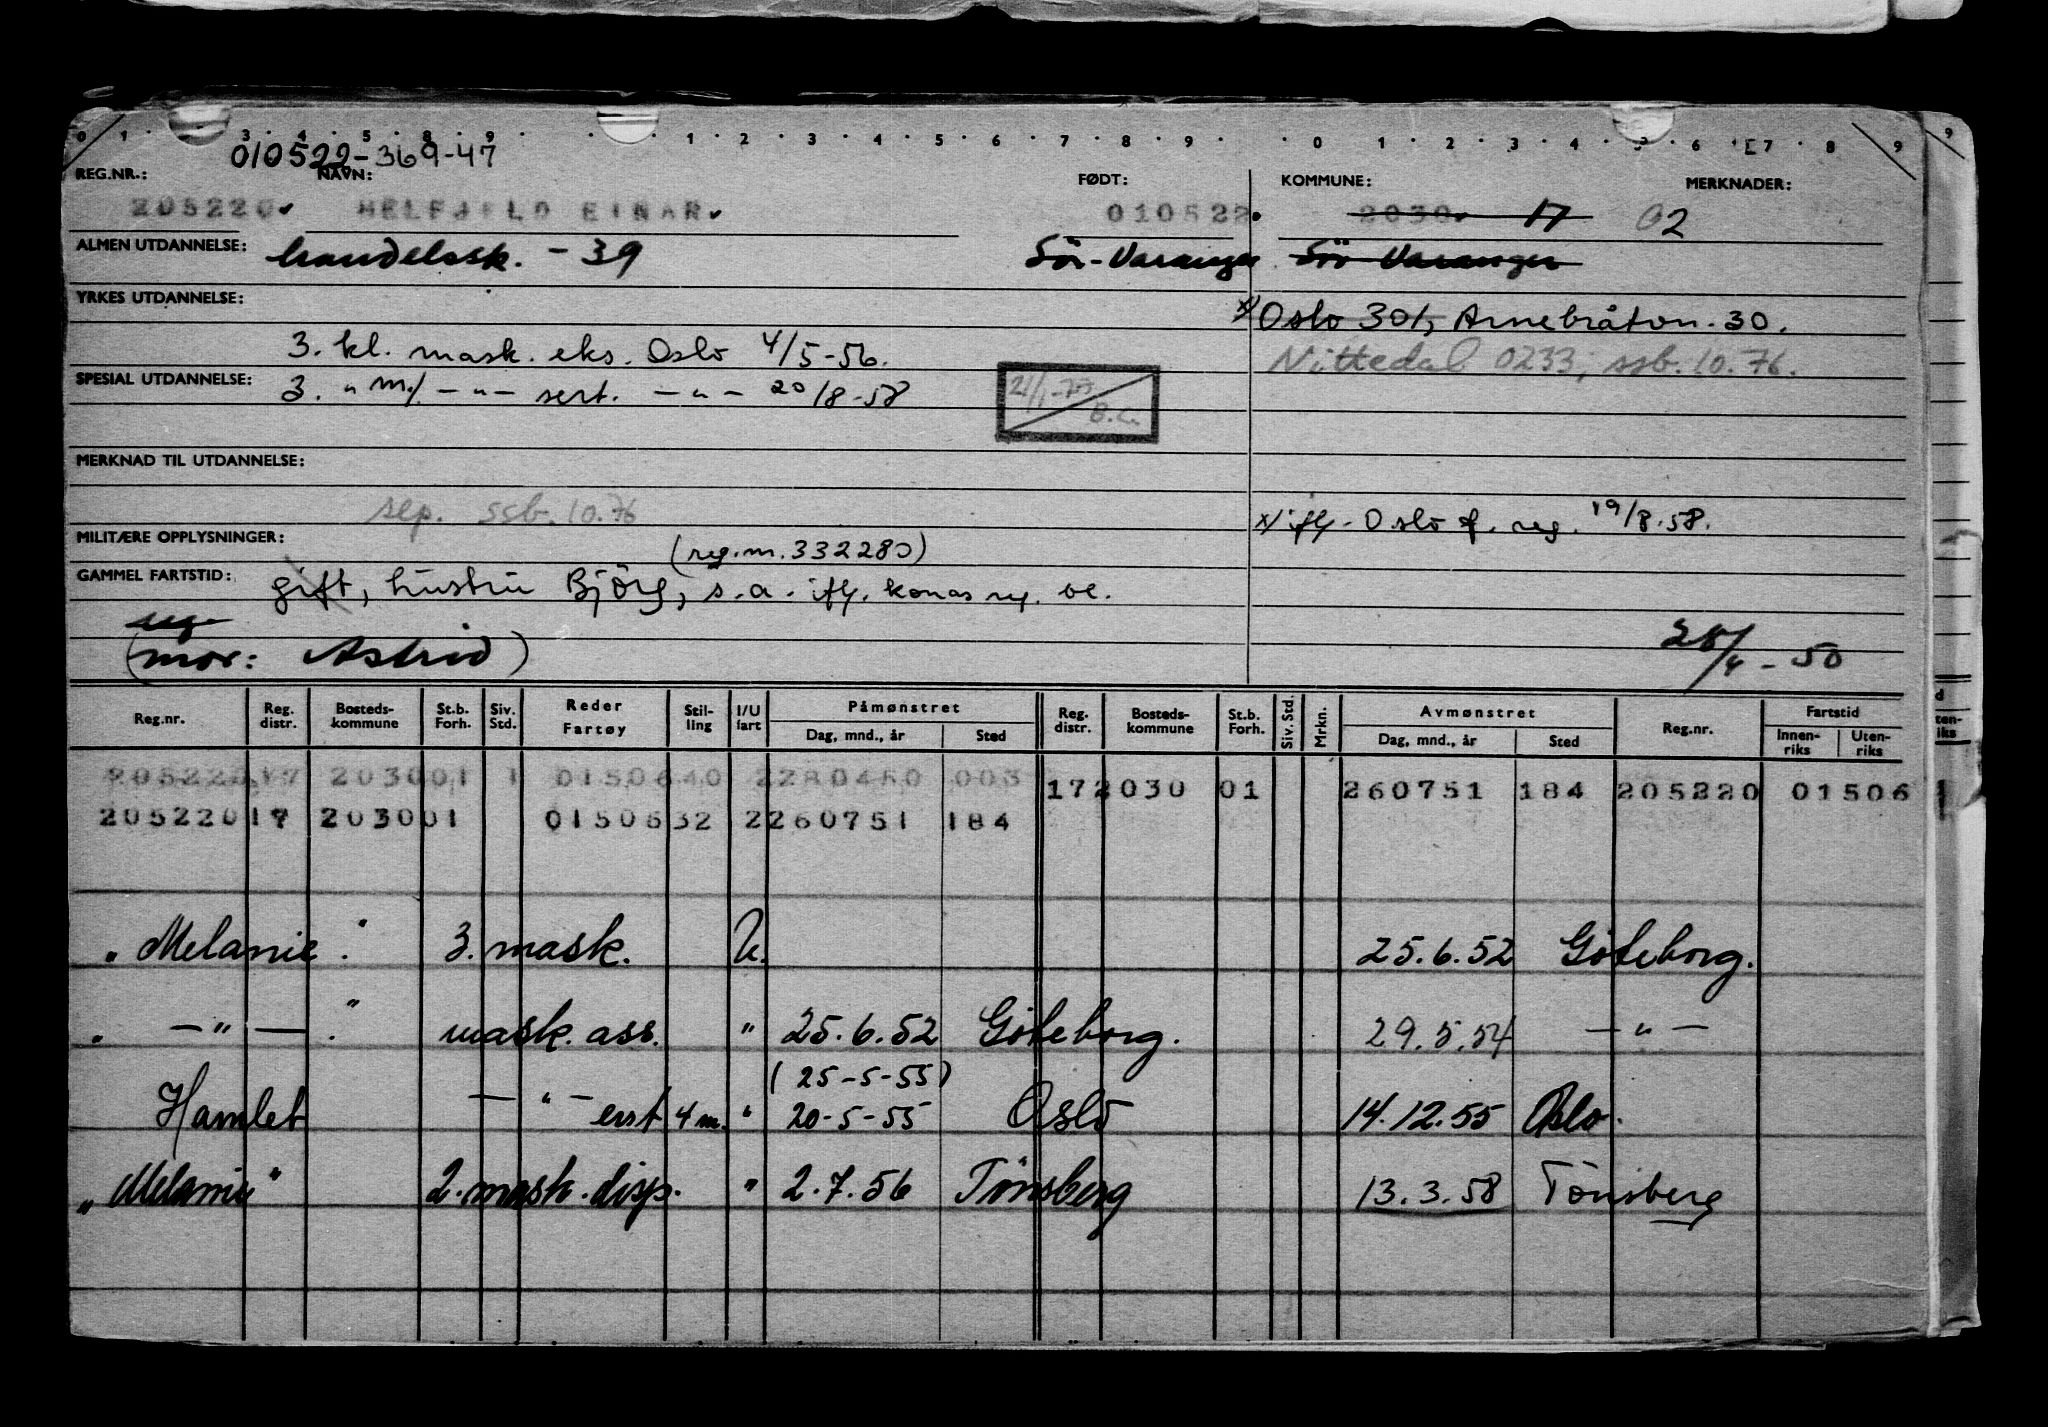 0 1 . . 3 . 4 . 5 . 8 . 9 . . . 1 . 2 . 3 . 4 . 5 . 6 . 7 . 8 . 9 . . 0 . 1 . 2 . 3 . 4 . 5 . 6 . 7 . 8 . 9
010522-369-47
REG.NR.: NAVN: FØDT: KOMMUNE: MERKNADER:
205220 HELFJELD EINAR 010522 2030 17 02
ALMEN UTDANNELSE: handelssk. - 39 Sör-Varanger Sör Varanger
YRKES UTDANNELSE:
x) Oslo 301, Arnebråtvn. 30.
3. kl. mask. eks. Oslo 4/5-56.
Nittedal 0233; ssb. 10.76.
SPESIAL UTDANNELSE: 3. " m/. - " - sert. - " - 20/8-58
21/1-77 B.C.
MERKNAD TIL UTDANNELSE:
sep. ssb. 10.76
x) ifl. Oslo f. reg. 19/8.58.
MILITÆRE OPPLYSNINGER: (reg.nr. 332280)
GAMMEL FARTSTID: gift, hustru Bjørg, s.a. ifl. konas reg. bl.
(mor: Astrid)
28/4 - 50
Reg.nr. Reg. distr. Bosteds- kommune St.b. Forh. Siv. Std. Reder Fartøy Stil- ling I/U fart Påmønstret Dag, mnd., år Sted Reg. distr. Bosteds- kommune St.b. Forh. Siv. Std. Mrkn. Avmønstret Dag, mnd., år Sted Reg.nr. Fartstid Innen- riks Uten- riks
205220 17 2030 01 1 01506 40 2 280450 003 17 2030 01 260751 184 205220 01506
205220 17 2030 01 01506 32 2 260751 184
"Melanie" 3. mask. U. 25.6.52 Göteborg.
" — " — " mask. ass. " 25.6.52 Göteborg. 29.5.54 — " —
(25-5-55)
Hamlet — " — erst 4 m. " 20-5-55 Oslo 14.12.55 Oslo.
"Melanie" 2. mask. disp. " 2.7.56 Tönsberg 13.3.58 Tönsberg